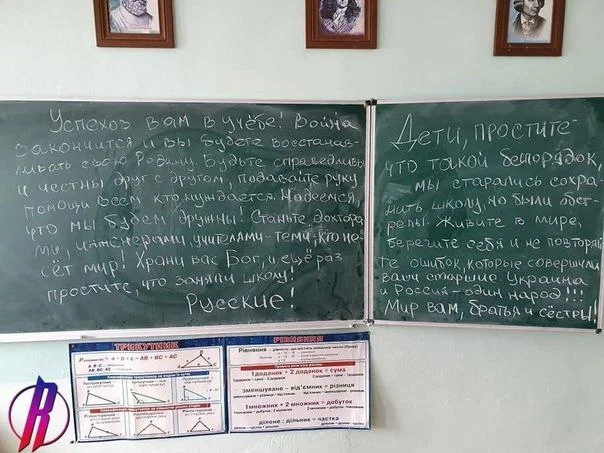 Успехов вам в учёбе! Война
закончится и вы будете восстанав-
ливать свою Родину. Будьте справедливы
и честны друг с другом, подавайте руку
помощи всем кто нуждается. Надеемся,
что мы будем дружны! Станьте доктора-
ми, инженерами, учителями - теми, кто не-
сёт мир! Храни вас Бог, и ещё раз
простите, что заняли школу!
Русские!
Дети, простите
что такой беспорядок,
мы старались сохра-
нить школу, но были обст-
релы. Живите в мире,
берегите себя и не повторяй-
те ошибок, которые совершили
ваши старшие. Украина
и Россия - один народ!!!
Мир вам, братья и сёстры!!
ТРИКУТНИК
P = a + b + c = AB + BC + AC
РІВНЯННЯ
Рівняння
1доданок + 2 доданок = сума
зменшуване - від'ємник = різниця
1множник • 2 множник = добуток
ділене : дільник = частка